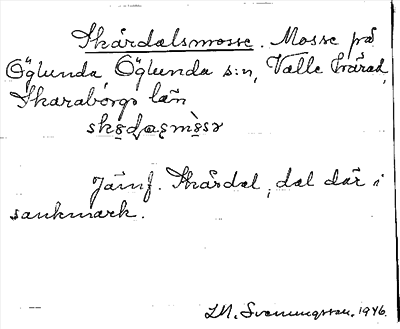 Skårdalsmosse. Mosse på
Öglunda Öglunda s:n, Valle härad,
Skaraborgs län
Jämf. Skårdal, dal där i
sankmark.
Svenningsson. 1946.